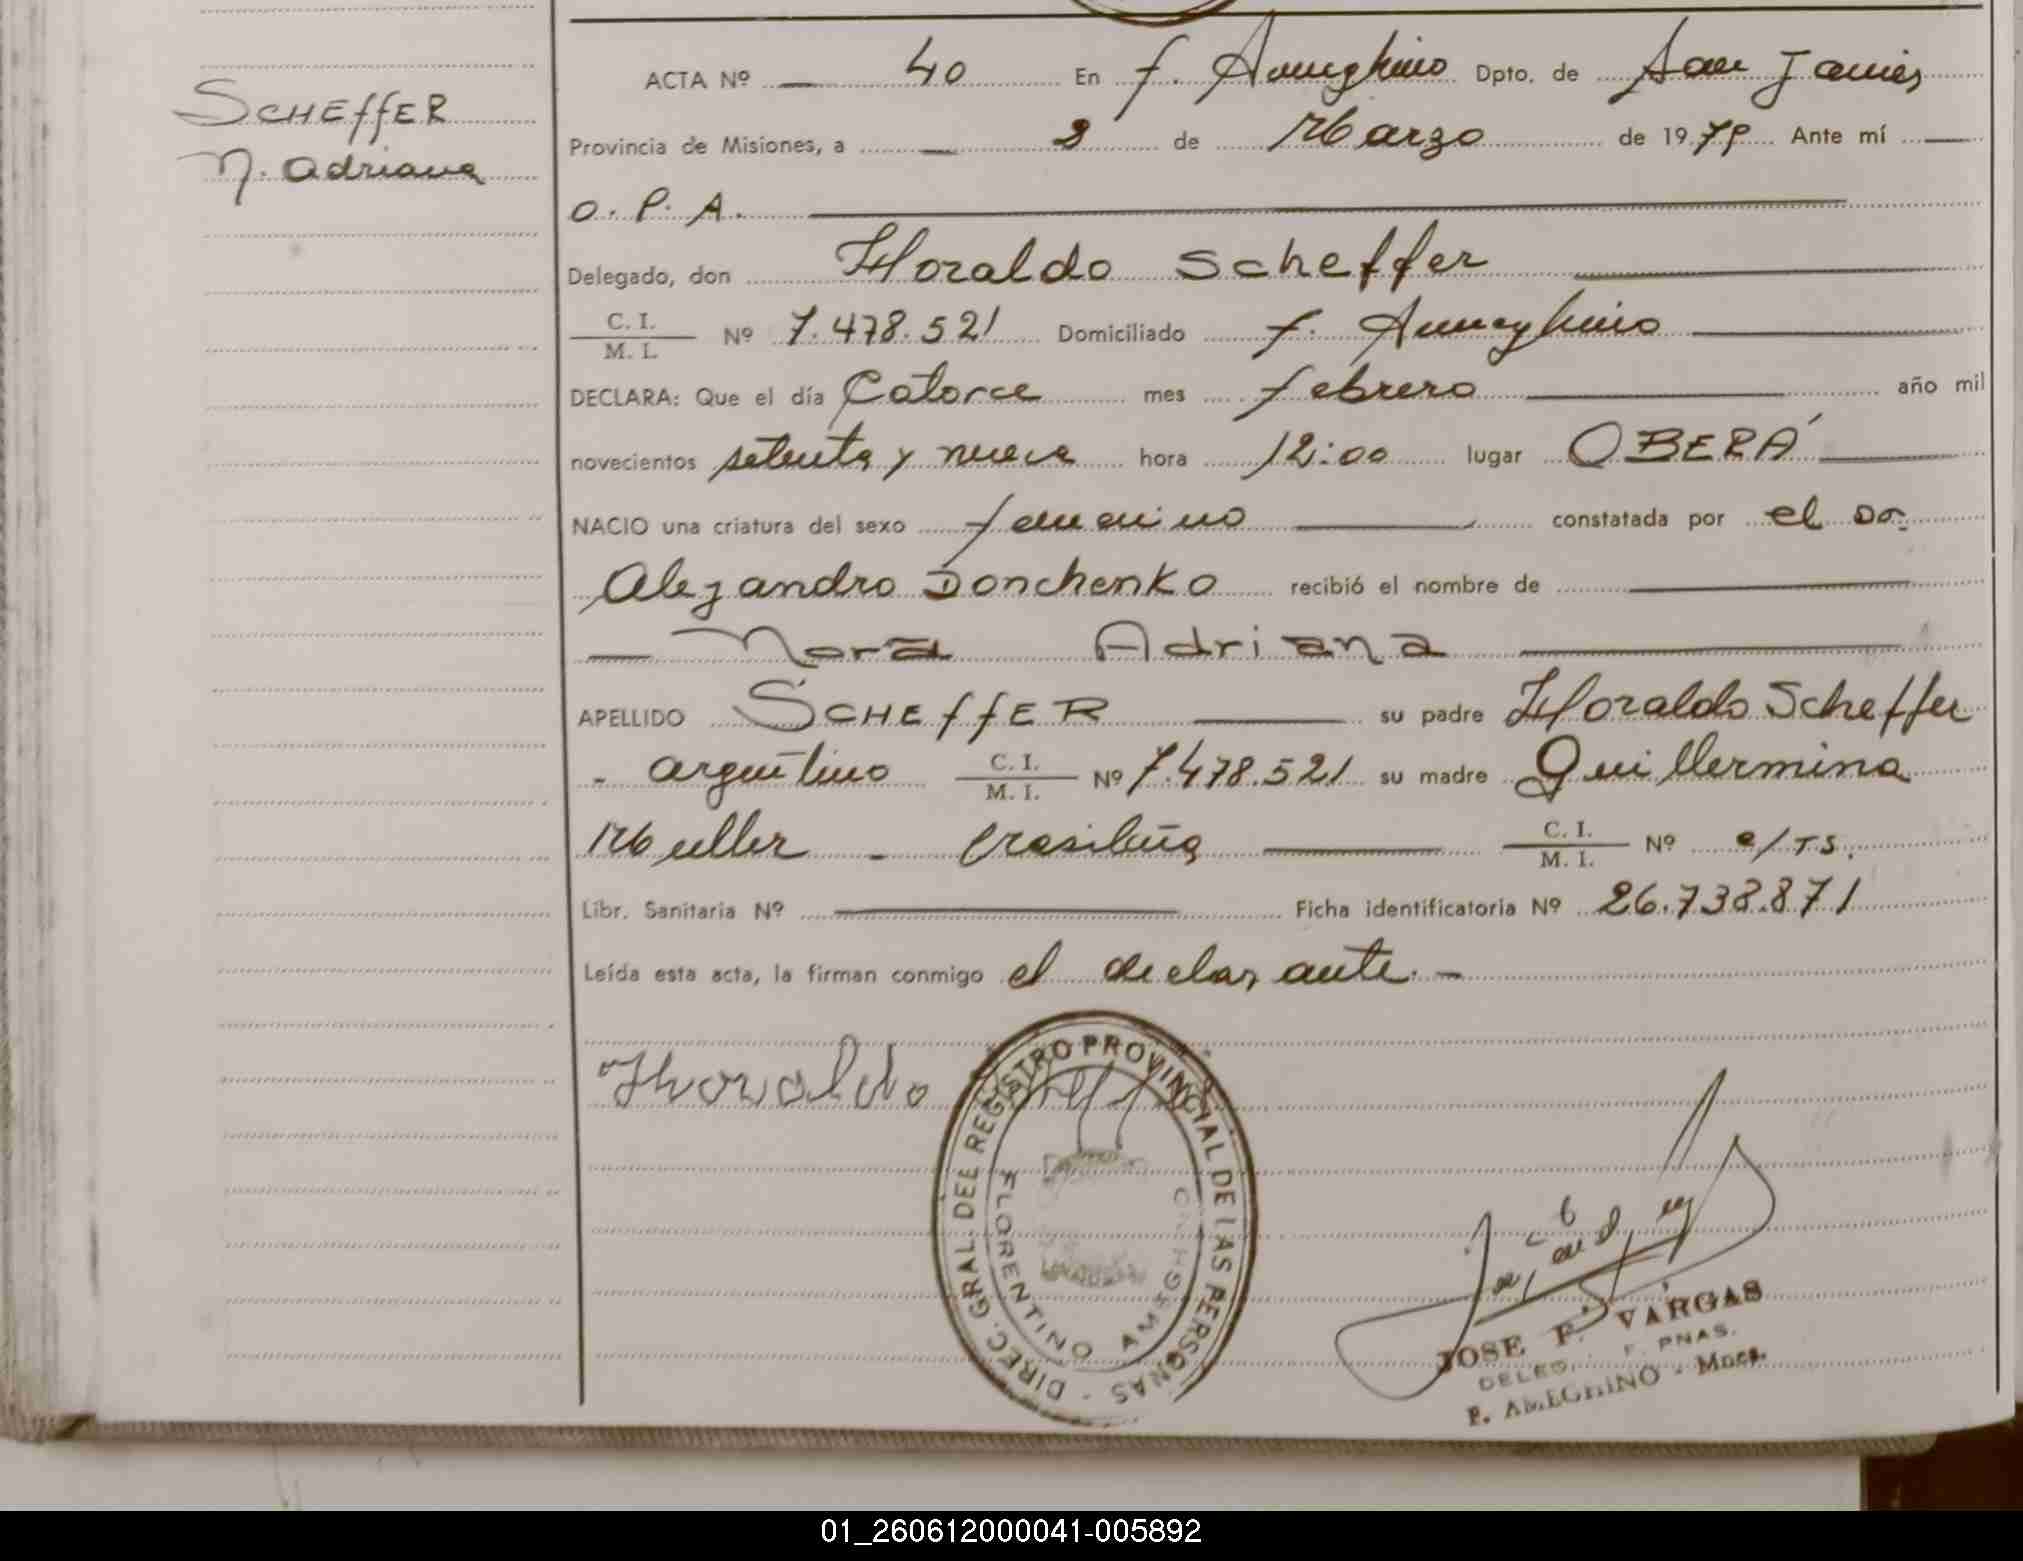 SCHEffER
N. Adriana
ACTA Nº 40 En F. Ameghino Dpto. de San Javier
Provincia de Misiones, a 2 de Marzo de 1979 Ante mí
O. P. A.
Delegado, don Horaldo Scheffer
C. I. / M. I. Nº 7.478.521 Domiciliado F. Ameghino
DECLARA: Que el día Catorce mes febrero año mil
novecientos setenta y nueve hora 12:00 lugar OBERÁ
NACIO una criatura del sexo femenino constatada por el Dr.
Alejandro Donchenko recibió el nombre de
Nora Adriana
APELLIDO SCHEffER su padre Horaldo Scheffer
- argentino C. I. / M. I. Nº 7.478.521 su madre Guillermina
Muller - brasileña C. I. / M. I. Nº e/TS.
Libr. Sanitaria Nº Ficha identificatoria Nº 26.738.871
Leída esta acta, la firman conmigo el declarante. -
Horaldo
DIREC. GRAL. DEL REGISTRO PROVINCIAL DE LAS PERSONAS -
FLORENTINO AMEGHINO
JOSE F. VARGAS
DELEG. F. PNAS.
F. AMEGHINO - Mnes.
01_260612000041-005892